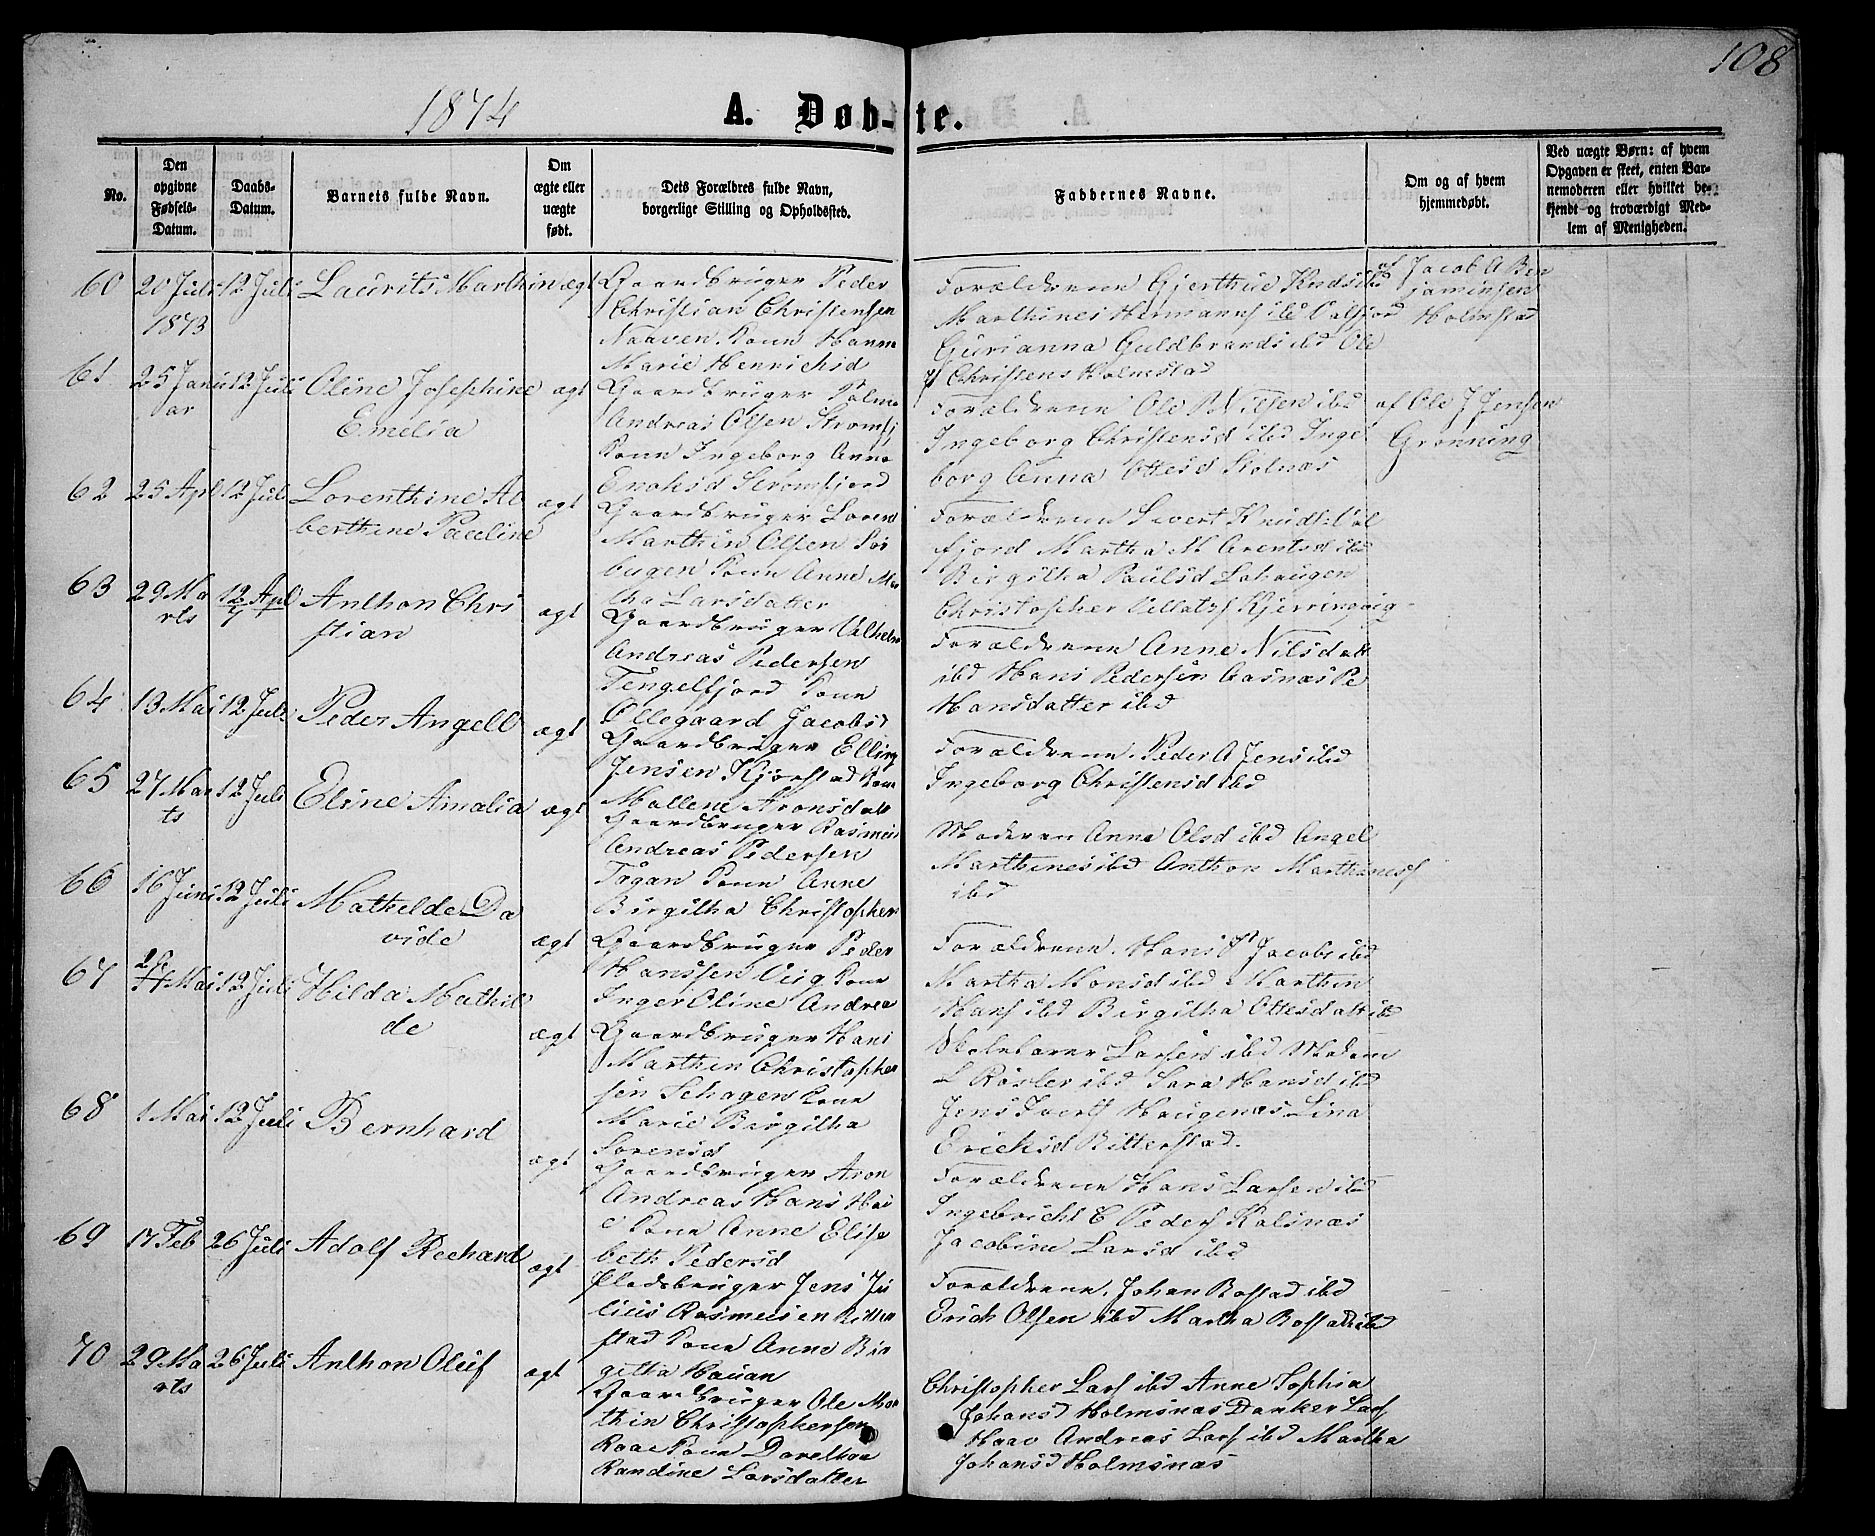 108
1874
A. Døb-te.
No.
Den opgivne Fødsels-Datum.
Daabs-Datum.
Barnets fulde Navn.
Om ægte eller uægte født.
Dets Forældres fulde Navn, borgerlige Stilling og Opholdssted.
Faddernes Navne.
Om og af hvem hjemmedøbt.
Ved uægte Børn: af hvem Opgaven er skeet, enten Barnemoderen eller hvilket bekjendt og troværdigt Medlem af Menigheden.
60 20 Juli 1873 12 Juli Laurits Marthin ægt
Gaardbruger Peder
Christian Christensen
Naaven Kone Hanna
Marie Henrichsd
Forældrene Gjerthrud Knds ibd
Marthines Hermanns ibd Valfjord
Gurianna Guldbrands ibd Ole
Christens Holmstad
af Jacob A Ben
jaminsen
Holmstad
61 25 Janu
ar 12 Juli Oline Josephine
Emelia ægt
Gaardbruger
Andreas Olsen Strømfj
Kone Ingeborg Anna
Enoksd Strømfjord
Forældrene Ole P Nilsen ibd
Ingeborg Christensd ibd Inge
borg Anna Ottesd
af Ole J Jensen
Grønning
62 25 Apl 12 Juli Lorenthine Al
berthine Pauline ægt
Gaardbruger Lorens
Marthin Olsen Sør
Kone Anne Mar
tha Larsdatter
Forældrene Sivert Knuds Val
fjord Martha M Arentsd ibd
Birgitha Paulsd Lahaugen
Christopher Kjerringvig
63 29 Ma
rts 12 Apl
7 Anthon Chri
stian ægt
Gaardbruger Vilhelm
Andreas Pedersen
Tengelfjord Kone
Ollegaard Jacobsd
Forældrene Anne Nilsdatt
ibd Hans Pedersen Aasnæs Pe
Hansdatter ibd
64 13 Mai 12 Juli Peder Angell ægt
Gaardbruger Elling
Jensen Kjørstad Kone
Mallene Aronsdatt
Forældrene Peder A Jens ibd
Ingeborg Christensd ibd
65 27 Mar
ts 12 Juli Eline Amalia ægt
Gaardbruger Rasmus
Andreas Pedersen
Tøgan Kone Anne
Birgitha Christophers
Moderen Anna Olsd ibd Angel
Marthines ibd Anthon Marthines
ibd
66 16 Juni 12 Juli Mathilde Da
vide ægt
Gaardbruger Peder
Hanssen Vig Kone
Inger Oline Andrea
Forældrene Hans P Jacobs ibd
Martha Monsd ibd Marthin
Hans ibd Birgitha Ottesdatt ib
67 Mai 12 Juli Hilda Mathil
de ægt
Gaardbruger Hans
Marthin Christopher
sen Schagen Kone
Marie Birgitha
Sørensd
Skolelærer Larsen ibd Madam
L Røsler ibd Sara Hansd ibd
Jens Ivers Haugenæs Lina
Ericksd Bitterstad
68 1 Mai 12 Juli Bernhard ægt
Gaardbruger Aron
Andreas Hans
Kone Anne Elisa
beth Pedersd
Forældrene Hans Larsen ibd
Ingebricht C Peders Kalsnæs
Jacobine Larsd ibd
69 17 Feb 26 Juli Adolf Rechard ægt
Pladsbruger Jens Ju
lius Rasmussen Bitter
stad Kone Anne Bir
githa Hauan
Forældrene Johan Bostad ibd
Erich Olsen ibd Martha Bostad ibd
70 29 Ma
rts 26 Juli Anthon Oluf ægt
Gaardbruger Ole Mar
thin Christophersen
Kone
Randine Larsdatter
Christopher Lars ibd Anne Sophia
Johansd Holmsnæs Danker Lars
Andreas Lars ibd Martha
Johansd Holmsnæs